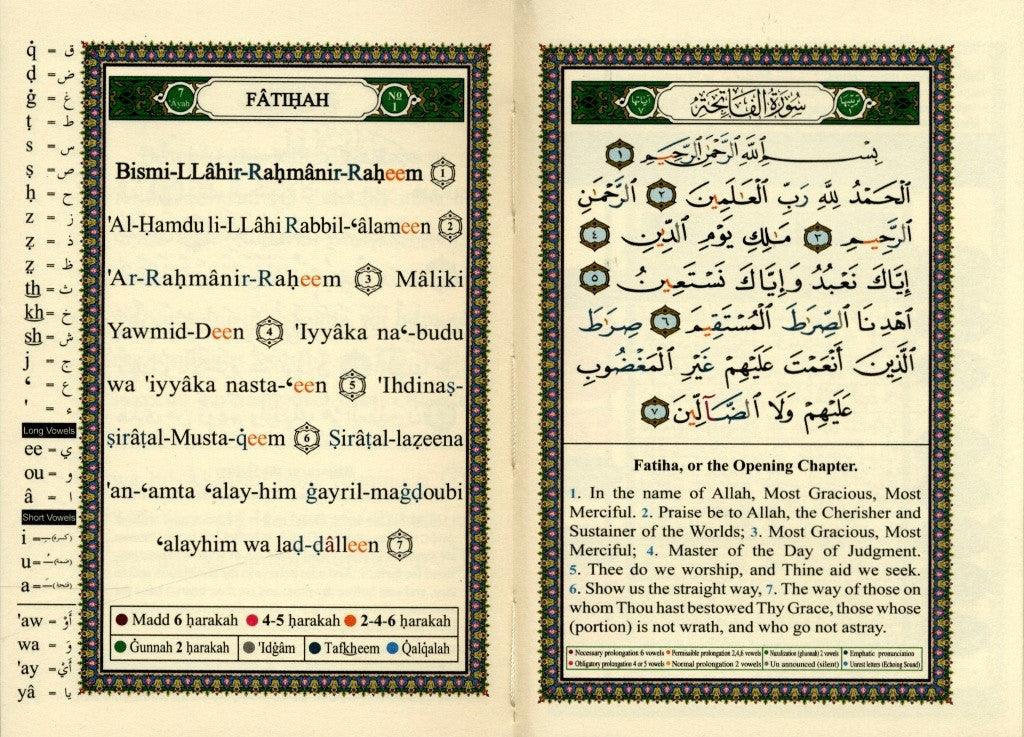 q̇ = ق
ḍ = ض
ġ = غ
ṭ = ط
s = س
ṣ = ص
ḥ = ح
z = ز
ẓ = ذ
ẓ = ظ
th = ث
kh = خ
sh = ش
j = ج
ʻ = ع
' = ء
Long Vowels
ee = ي
ou = و
â = ا
Short Vowels
i = ـِ (كسرة)
u = ـُ (ضمة)
a = ـَ (فتحة)
'aw = أَوْ
wa = وَ
'ay = أَيْ
yâ = يا
7 'Ayah
FÂTIḤAH
No 1
Bismi-LLâhir-Raḥmânir-Raḥeem 1
'Al-Ḥamdu li-LLâhi Rabbil-ʻâlameen 2
'Ar-Raḥmânir-Raḥeem 3 Mâliki
Yawmid-Deen 4 'Iyyâka naʻ-budu
wa 'iyyâka nasta-ʻeen 5 'Ihdinaṣ-
ṣirâṭal-Musta-q̇eem 6 Ṣirâṭal-laẓeena
'an-ʻamta ʻalay-him ġayril-maġḍoubi
ʻalayhim wa laḍ-ḍâlleen 7
Madd 6 ḥarakah 4-5 ḥarakah 2-4-6 ḥarakah
Ġunnah 2 ḥarakah 'Idġâm Tafkheem Q̇alq̇alah
ترتيبها ١
سُورَةُ الفَاتِحَةِ
آياتها ٧
بِسْمِ ٱللَّهِ ٱلرَّحْمَٰنِ ٱلرَّحِيمِ ١
ٱلْحَمْدُ لِلَّهِ رَبِّ ٱلْعَٰلَمِينَ ٢ ٱلرَّحْمَٰنِ
ٱلرَّحِيمِ ٣ مَٰلِكِ يَوْمِ ٱلدِّينِ ٤
إِيَّاكَ نَعْبُدُ وَإِيَّاكَ نَسْتَعِينُ ٥
ٱهْدِنَا ٱلصِّرَٰطَ ٱلْمُسْتَقِيمَ ٦ صِرَٰطَ
ٱلَّذِينَ أَنْعَمْتَ عَلَيْهِمْ غَيْرِ ٱلْمَغْضُوبِ
عَلَيْهِمْ وَلَا ٱلضَّآلِّينَ ٧
Fatiha, or the Opening Chapter.
1. In the name of Allah, Most Gracious, Most
Merciful. 2. Praise be to Allah, the Cherisher and
Sustainer of the Worlds; 3. Most Gracious, Most
Merciful; 4. Master of the Day of Judgment.
5. Thee do we worship, and Thine aid we seek.
6. Show us the straight way, 7. The way of those on
whom Thou hast bestowed Thy Grace, those whose
(portion) is not wrath, and who go not astray.
Necessary prolongation 6 vowels Permissible prolongation 2,4,6 vowels Nazalization (ghunnah) 2 vowels Emphatic pronunciation
Obligatory prolongation 4 or 5 vowels Normal prolongation 2 vowels Un announced (silent) Unrest letters (Echoing Sound)